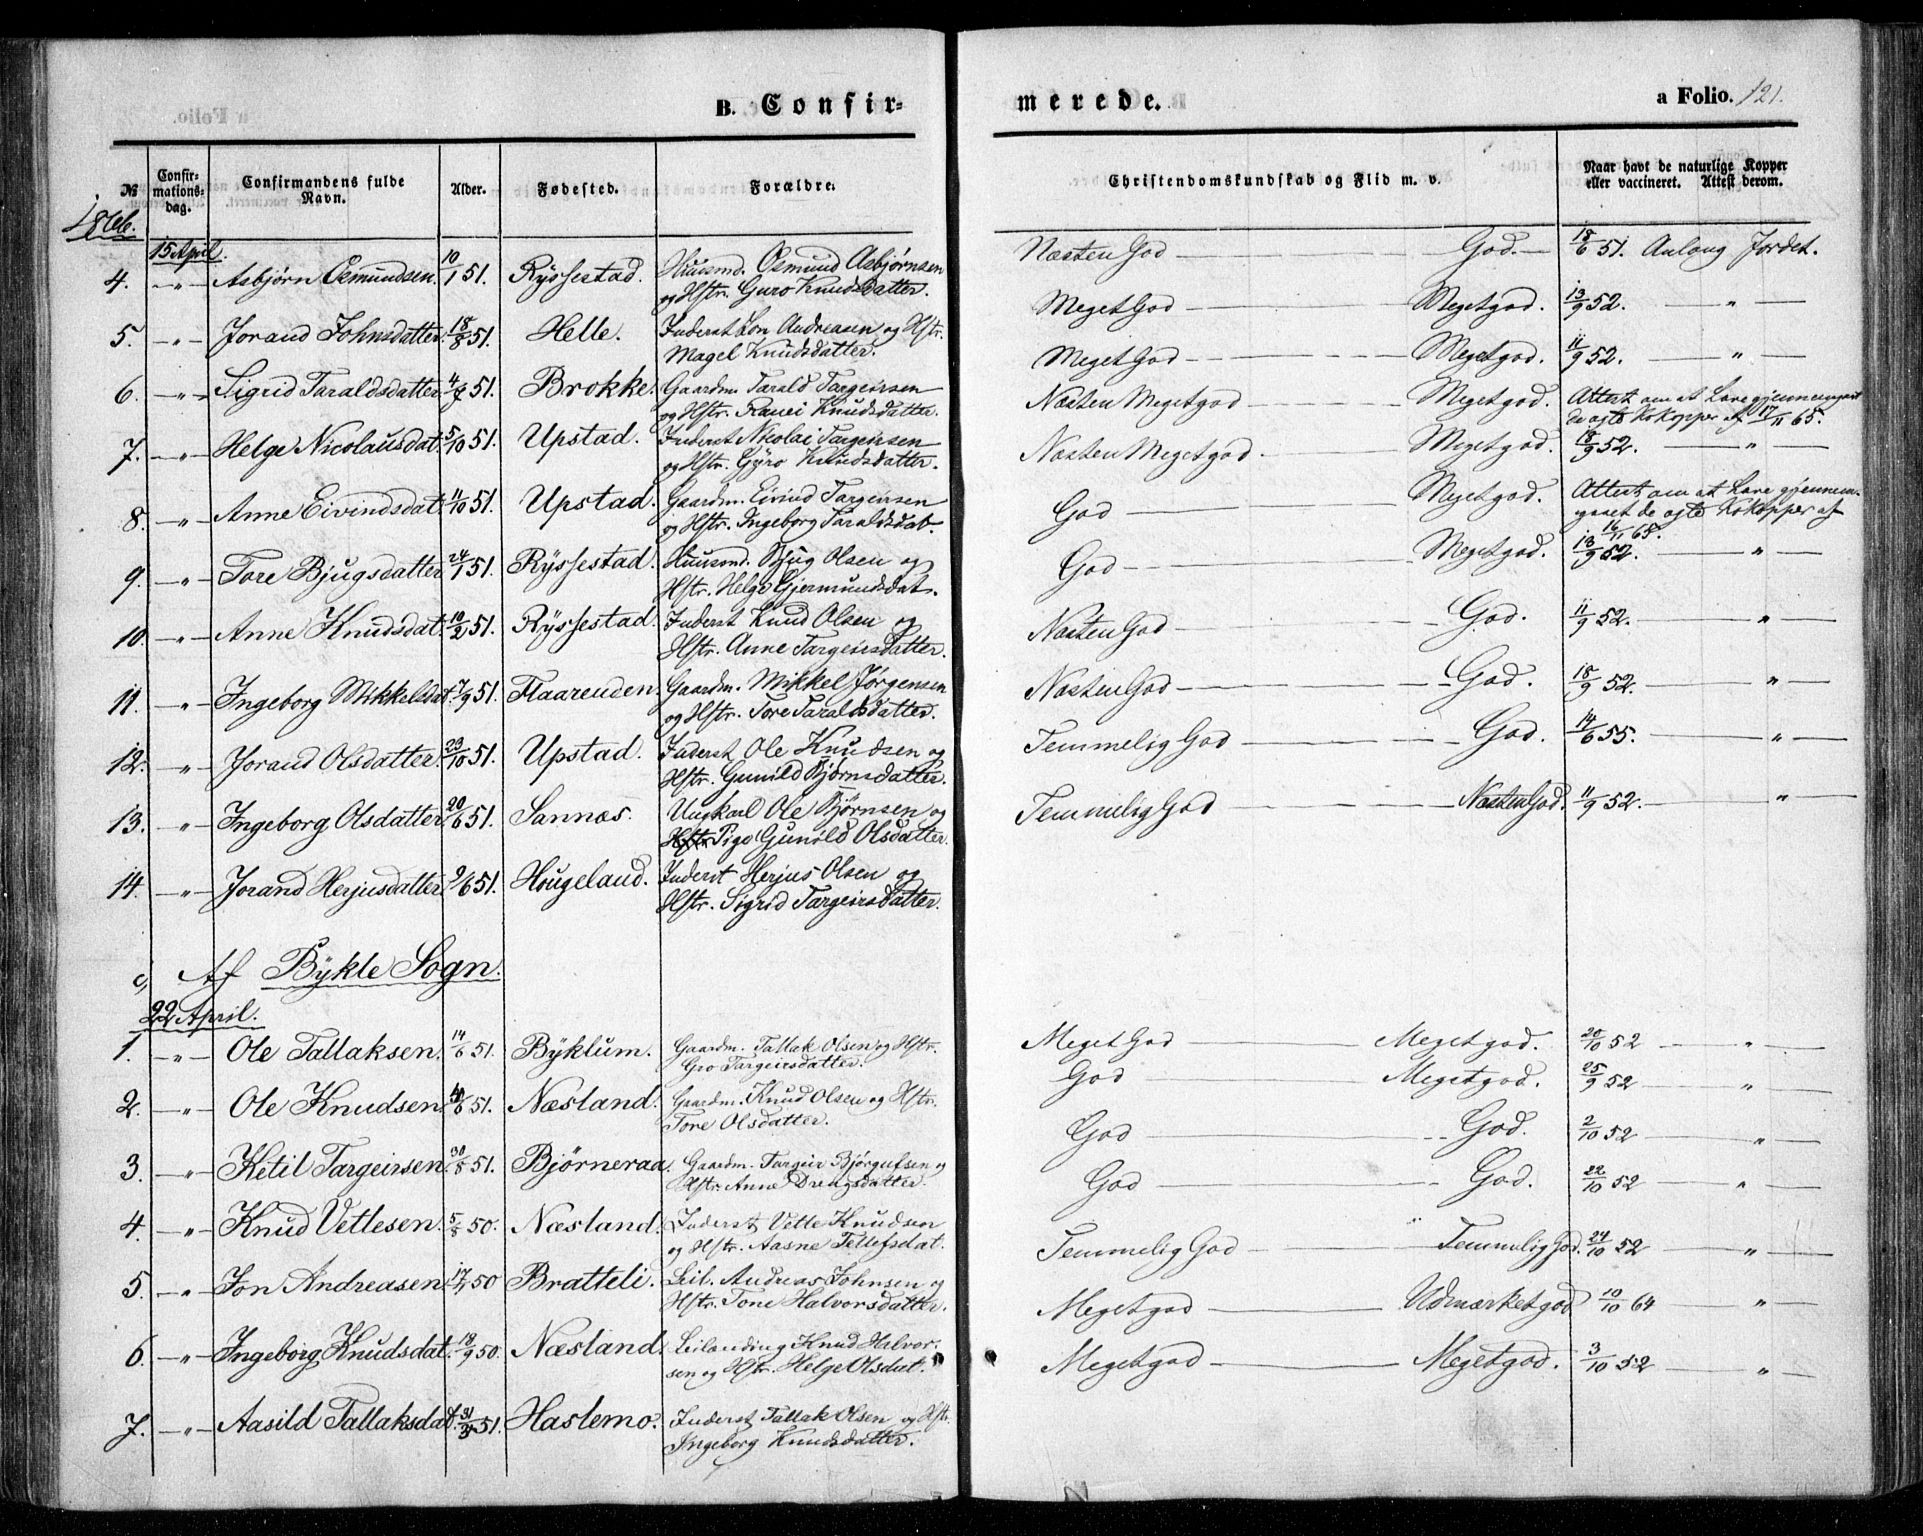 B. Confir-
merede.
a Folio. 121.
№
Confirmations-dag.
Confirmandens fulde Navn.
Alder.
Fødested.
Forældre.
Christendomskundskab og Flid m. v.
Naar havt de naturlige Kopper eller vaccineret. Attest derom.
1866.
15 April.
4. -"- Asbjørn Osmundsen. 10/1 51. Ryssestad. Huusmd. Osmund Asbjørnsen
og Hstr. Guro Knudsdatter.
Næsten God — God. — 18/6 51. Anlang Jordet.
5. -"- Jorand Johnsdatter. 18/8 51. Helle. Inderst Jon Andreasen og Hstr.
Magel Knudsdatter.
Meget God — Meget god. 13/9 52. — " —
6. -"- Sigrid Taraldsdatter 51. Brokke. Gaardm. Tarald Targeirsen
og Hstr. Ranei Knudsdatter.
Meget God — Meget god. 11/9 52. — " —
7. -"- Helge Nicolausdat. 5/10 51. Upstad. Inderst Nikolai Targeirsen
og Hstr. Gyro Knudsdatter.
Næsten Meget god — Meget god. Attest om at have gjennemgaaet
de ægte Kokopper af 17/11 65.
8. -"- Anne Eivindsdat. 11/10 51. Upstad. Gaardm. Eivind Targeirsen
og Hstr. Ingeborg Taraldsdat.
Næsten Meget god. — Meget god. 18/9 52. — " —
9. -"- Tore Bjugsdatter 24/1 51. Ryssestad. Huusmd. Bjug Olsen og
Hstr. Helge Gjermundsdat.
God — Meget god. Attest om at have gjennem-
gaaet de ægte Kokopper af
16/11 65.
10. -"- Anne Knudsdat. 10/2 51. Ryssestad. Inderst Knud Olsen og
Hstr. Anne Targeirsdatter.
God — Meget god. 18/9 52. — " —
11. -"- Ingeborg Mikkelsdat. 7/9 51. Flaarenden. Gaardm. Mikkel Jørgensen
og Hstr. Tore Taraldsdatter.
Næsten God — God. 11/9 52. — " —
12. -"- Jorand Olsdatter. 23/10 51. Upstad. Inderst Ole Knudsen og
Hstr. Gunild Bjørnsdatter.
Næsten God — God. 18/9 52. — " —
13. -"- Ingeborg Olsdatter. 20/6 51. Sannæs. Ungkarl Ole Bjørnsen og
Hstr. Pige Gunild Olsdatter.
Temmelig God — God. 14/6 55. — " —
14. -"- Jorand Herjusdatter 9/6 51. Hougeland. Inderst Herjus Olsen og
Hstr. Sigrid Targeirsdatter.
Temmelig God — Næsten God. 11/9 52. — " —
c, Af Bykle Sogn.
22 April.
1. -"- Ole Tallaksen. 14/6 51. Byklum. Gaardm. Tallak Olsen og Hstr.
Gro Targeirsdatter.
Meget God — Meget god. 20/10 52 — " —
2. -"- Ole Knudsen. 51. Næsland. Gaardm. Knud Olsen og Hstr.
Tore Olsdatter.
God — Meget god. 25/9 52 — " —
3. -"- Ketil Targeirsen. 30/8 51. Bjørneraa. Gaardm. Targeir Bjørgufsen og
Hstr. Anne Drengsdatter.
God — God. 2/10 52 — " —
4. -"- Knud Vetlesen. 5/8 50. Næsland. Inderst Vetle Knudsen
og Hstr. Aasne Tellefsdat.
God — God. 22/10 52 — " —
5. -"- Jon Andreasen. 50 Bratteli. Leil. Andreas Johnsen og
Hstr. Tone Halvorsdatter.
Temmelig God — Temmelig God. 24/10 52 — " —
6. -"- Ingeborg Knudsdat. 18/9 50. Næsland. Leilending Knud Halvor-
sen og Hstr. Helge Olsdat.
Meget god — Udmærket god 10/10 64 — " —
7. -"- Aasild Tallaksdat. 31/3 51. Haslemo. Inderst Tallak Olsen og Hstr.
Ingeborg Knudsdatter.
Meget god — Meget god. 3/10 52 — " —